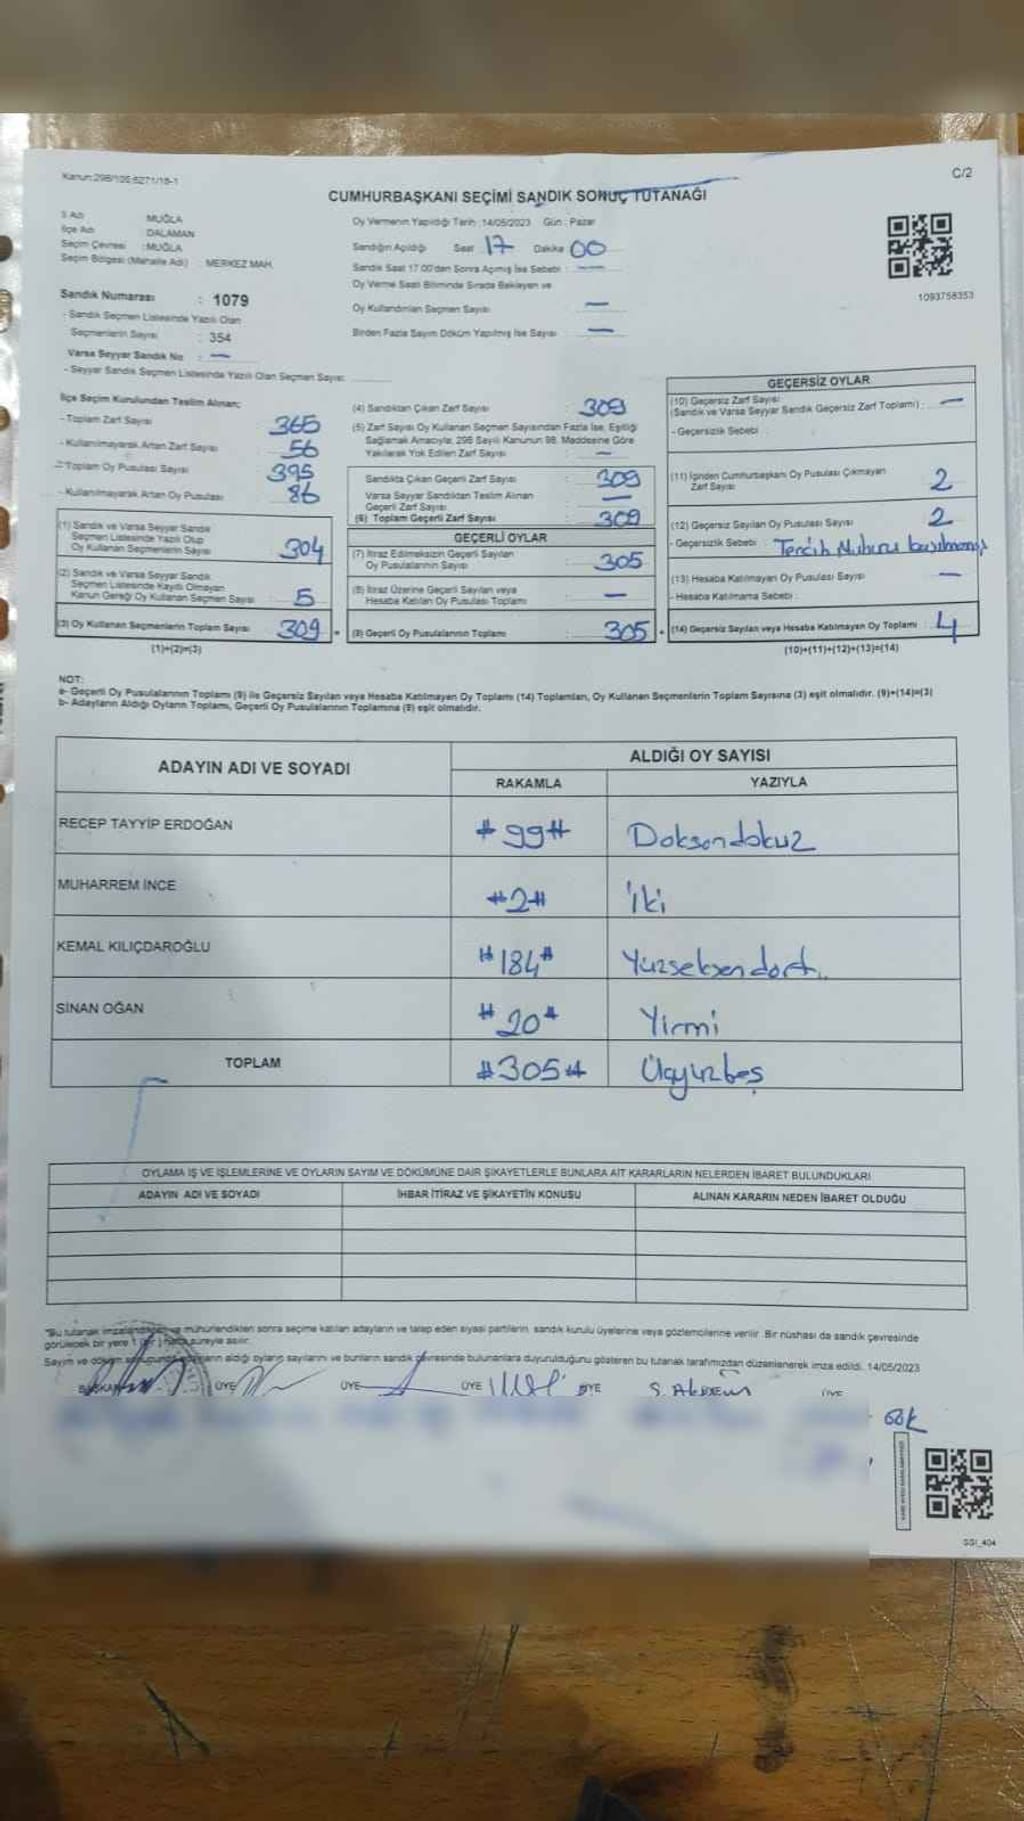 Kanun:298/105;6271/18-1
C/2
CUMHURBAŞKANI SEÇİMİ SANDIK SONUÇ TUTANAĞI
İl Adı MUĞLA
İlçe Adı DALAMAN
Seçim Çevresi :MUĞLA
Seçim Bölgesi (Mahalle Adı) : MERKEZ MAH.
Oy Vermenin Yapıldığı Tarih :14/05/2023 Gün : Pazar
Sandığın Açıldığı Saat 17 Dakika 00
Sandık Saat 17.00'den Sonra Açılmış İse Sebebi : —
Oy Verme Saati Bitiminde Sırada Bekleyen ve
Oy Kullandırılan Seçmen Sayısı : —
Birden Fazla Sayım Döküm Yapılmış İse Sayısı : —
1093758353
Sandık Numarası : 1079
- Sandık Seçmen Listesinde Yazılı Olan
Seçmenlerin Sayısı : 354
Varsa Seyyar Sandık No : —
- Seyyar Sandık Seçmen Listesinde Yazılı Olan Seçmen Sayısı:
İlçe Seçim Kurulundan Teslim Alınan:
- Toplam Zarf Sayısı : 365
- Kullanılmayarak Artan Zarf Sayısı : 56
- Toplam Oy Pusulası Sayısı : 395
- Kullanılmayarak Artan Oy Pusulası : 86
(1) Sandık ve Varsa Seyyar Sandık
Seçmen Listesinde Yazılı Olup
Oy Kullanan Seçmenlerin Sayısı : 304
(2) Sandık ve Varsa Seyyar Sandık
Seçmen Listesinde Kaydı Olmayan
Kanun Gereği Oy Kullanan Seçmen Sayısı : 5
(3) Oy Kullanan Seçmenlerin Toplam Sayısı : 309 =
(1)+(2)=(3)
(4) Sandıktan Çıkan Zarf Sayısı : 309
(5) Zarf Sayısı Oy Kullanan Seçmen Sayısından Fazla İse, Eşitliği
Sağlamak Amacıyla, 298 Sayılı Kanunun 98. Maddesine Göre
Yakılarak Yok Edilen Zarf Sayısı : —
Sandıkta Çıkan Geçerli Zarf Sayısı : 309
Varsa Seyyar Sandıktan Teslim Alınan
Geçerli Zarf Sayısı : —
(6) Toplam Geçerli Zarf Sayısı : 309
GEÇERLİ OYLAR
(7) İtiraz Edilmeksizin Geçerli Sayılan
Oy Pusulalarının Sayısı : 305
(8) İtiraz Üzerine Geçerli Sayılan veya
Hesaba Katılan Oy Pusulası Toplamı : —
(9) Geçerli Oy Pusulalarının Toplamı : 305 +
GEÇERSİZ OYLAR
(10) Geçersiz Zarf Sayısı
(Sandık ve Varsa Seyyar Sandık Geçersiz Zarf Toplamı) : —
- Geçersizlik Sebebi :
(11) İçinden Cumhurbaşkanı Oy Pusulası Çıkmayan
Zarf Sayısı : 2
(12) Geçersiz Sayılan Oy Pusulası Sayısı : 2
- Geçersizlik Sebebi : Tercih Mührü basılmamış
(13) Hesaba Katılmayan Oy Pusulası Sayısı : —
- Hesaba Katılmama Sebebi :
(14) Geçersiz Sayılan veya Hesaba Katılmayan Oy Toplamı : 4
(10)+(11)+(12)+(13)=(14)
NOT:
a- Geçerli Oy Pusulalarının Toplamı (9) ile Geçersiz Sayılan veya Hesaba Katılmayan Oy Toplamı (14) Toplamları, Oy Kullanan Seçmenlerin Toplam Sayısına (3) eşit olmalıdır. (9)+(14)=(3)
b- Adayların Aldığı Oyların Toplamı, Geçerli Oy Pusulalarının Toplamına (9) eşit olmalıdır.
ADAYIN ADI VE SOYADI
ALDIĞI OY SAYISI
RAKAMLA YAZIYLA
RECEP TAYYİP ERDOĞAN #99# Doksandokuz
MUHARREM İNCE #2# İki
KEMAL KILIÇDAROĞLU #184# Yüzseksendört
SİNAN OĞAN #20# Yirmi
TOPLAM #305# Üçyüzbeş
OYLAMA İŞ VE İŞLEMLERİNE VE OYLARIN SAYIM VE DÖKÜMÜNE DAİR ŞİKAYETLERLE BUNLARA AİT KARARLARIN NELERDEN İBARET BULUNDUKLARI
ADAYIN ADI VE SOYADI İHBAR İTİRAZ VE ŞİKAYETİN KONUSU ALINAN KARARIN NEDEN İBARET OLDUĞU
"Bu tutanak imzalandıktan ve mühürlendikten sonra seçime katılan adayların ve talep eden siyasi partilerin, sandık kurulu üyelerine veya gözlemcilerine verilir. Bir nüshası da sandık çevresinde
görülecek bir yere 1 (bir) hafta süreyle asılır.
Sayım ve döküm sonucunda adayların aldığı oyların sayılarını ve bunların sandık çevresinde bulunanlara duyurulduğunu gösteren bu tutanak tarafımızdan düzenlenerek imza edildi. 14/05/2023
BAŞKAN ÜYE ÜYE ÜYE ÜYE ÜYE
SSI_404